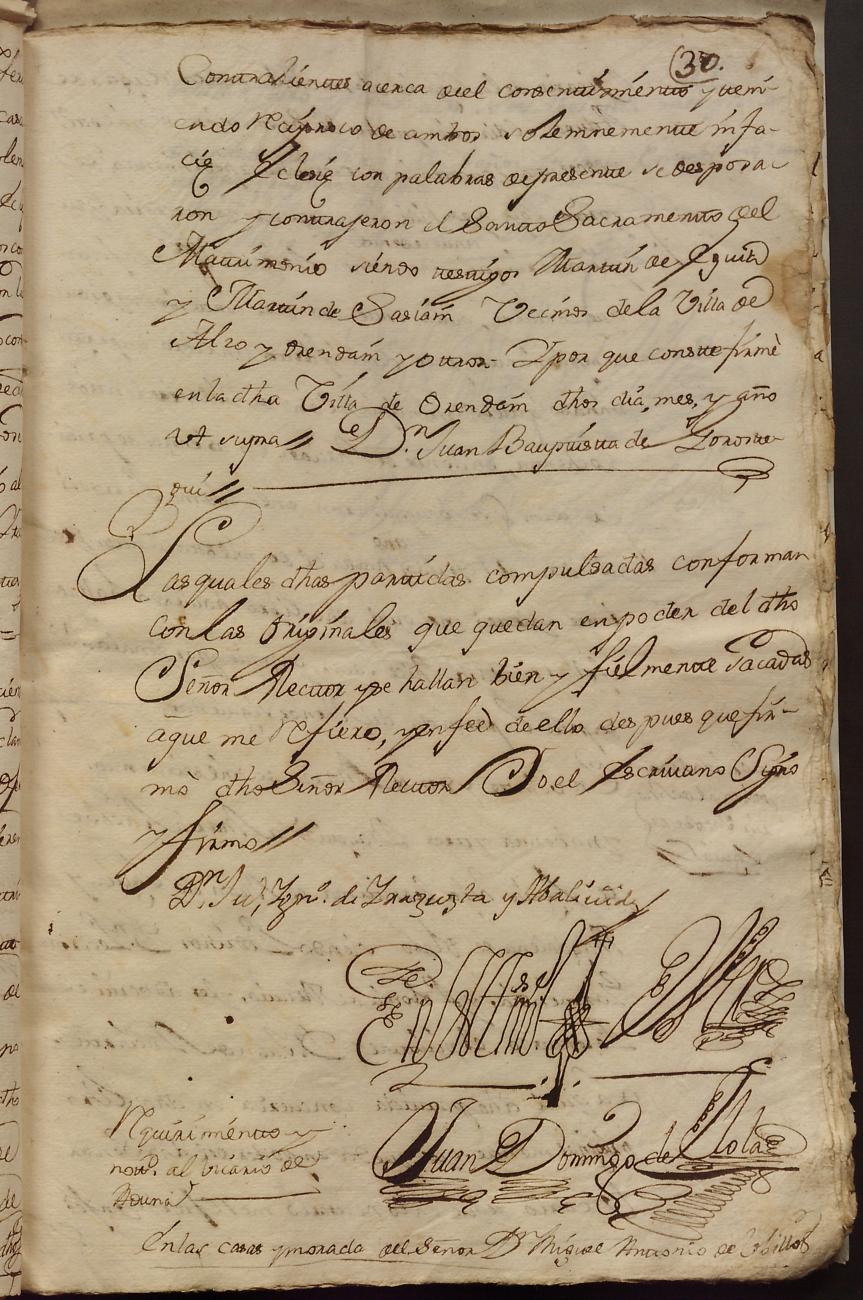 (30.
Contrahientes acerca de el consentimiento y tem-
endo reciproco de ambos solemnemente in fa-
cie Eclesie con palabras de presente se desposa-
ron y contrajeron el Santo Sacramento del
Matrimonio siendo testigos Martin de
y Martin de Sasiain Vecinos de la Villa de
Alzo y Orendain y otros. Y por que conste firmè
en la dha Villa de Orendain dhos dia, mes, y año
ut supra // Dn. Juan Bauptista de Goroste-
gui //
Las quales dhas partidas compulsadas conforman
con las originales que quedan en poder del dho
Señor Rector y se hallan bien y fielmente sacadas
a que me refiero, y en feè de ello despues que fir-
mò dho Señor Rector Yo el Escrivano Signo
y firmo //
Dn Ju, Ygnº. de Yrazuzta y
En testimº de Verd
Juan Domingo de
Requirimiento y
notn. al vicario de
En las casas y morada del Señor Dn Miguel Antonio de